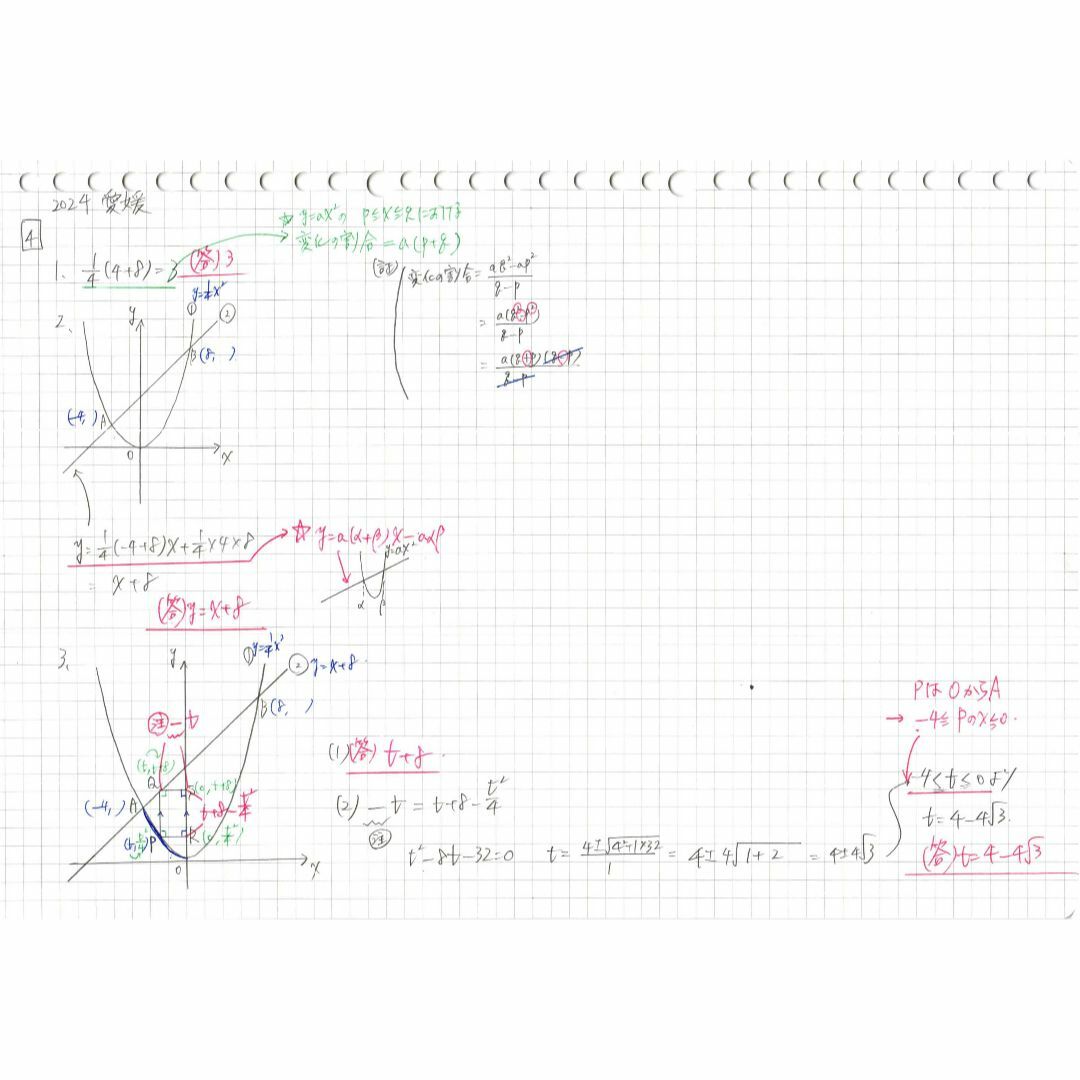 2024 愛媛
4
☆ y=ax²の p≦x≦qにおける
変化の割合 = a(p+q)
1. 1/4(4+8)=3 (答) 3
(証) 変化の割合 = (aq²-ap²)/(q-p)
= a(q²-p²)/(q-p)
= a(q+p)(q-p)/(q-p)
2.
y
① y=1/4x²
②
B(8, )
(-4, ) A
O
x
y=1/4(-4+8)x+1/4×4×8
= x+8
☆ y=a(α+β)x-aαβ
y=ax²
α β
(答) y=x+8
3.
y
① y=1/4x²
② y=x+8
B(8, )
(注) -t
(t, t+8)
Q
S(0, t+8)
t+8-t²/4
(-4, ) A
(t, t²/4) P
R(0, t²/4)
O
x
(1) (答) t+8
(2) -t = t+8-t²/4
(注)
t²-8t-32=0 t= (4±√(4²+1×32))/1 = 4±4√(1+2) = 4±4√3
Pは OからA
→ -4≦Pのx≦0.
-4≦t≦0より
t=4-4√3.
(答) t=4-4√3